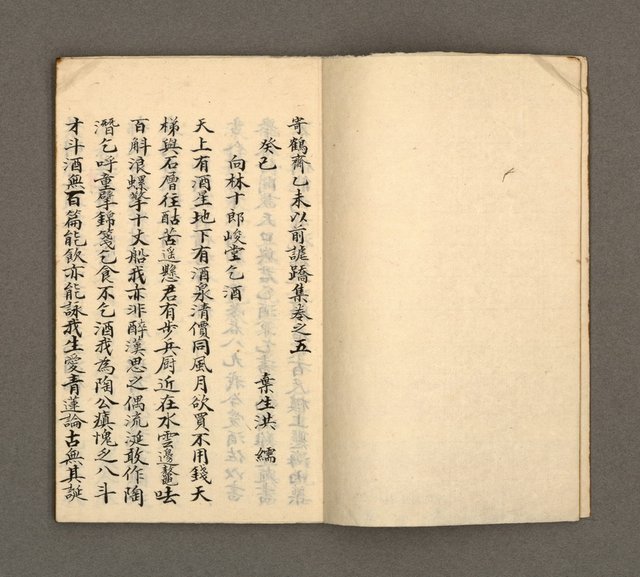 寄鶴齋乙未以前謔蹻集卷之五
癸巳　棄生洪繻
向林十郎峻堂乞酒
天上有酒星地下有酒泉清價同風月欲買不用錢天
梯與石層往酤苦遥懸君有步兵厨近在水雲邊鼇呿
百斛浪螺擎十丈船我亦非醉漢思之偶流涎敢作陶
潛乞呼童擘錦箋乞食不乞酒我為陶公瘨愧乏八斗
才斗酒無百篇能飲亦能詠我生愛青蓮論古無其誕